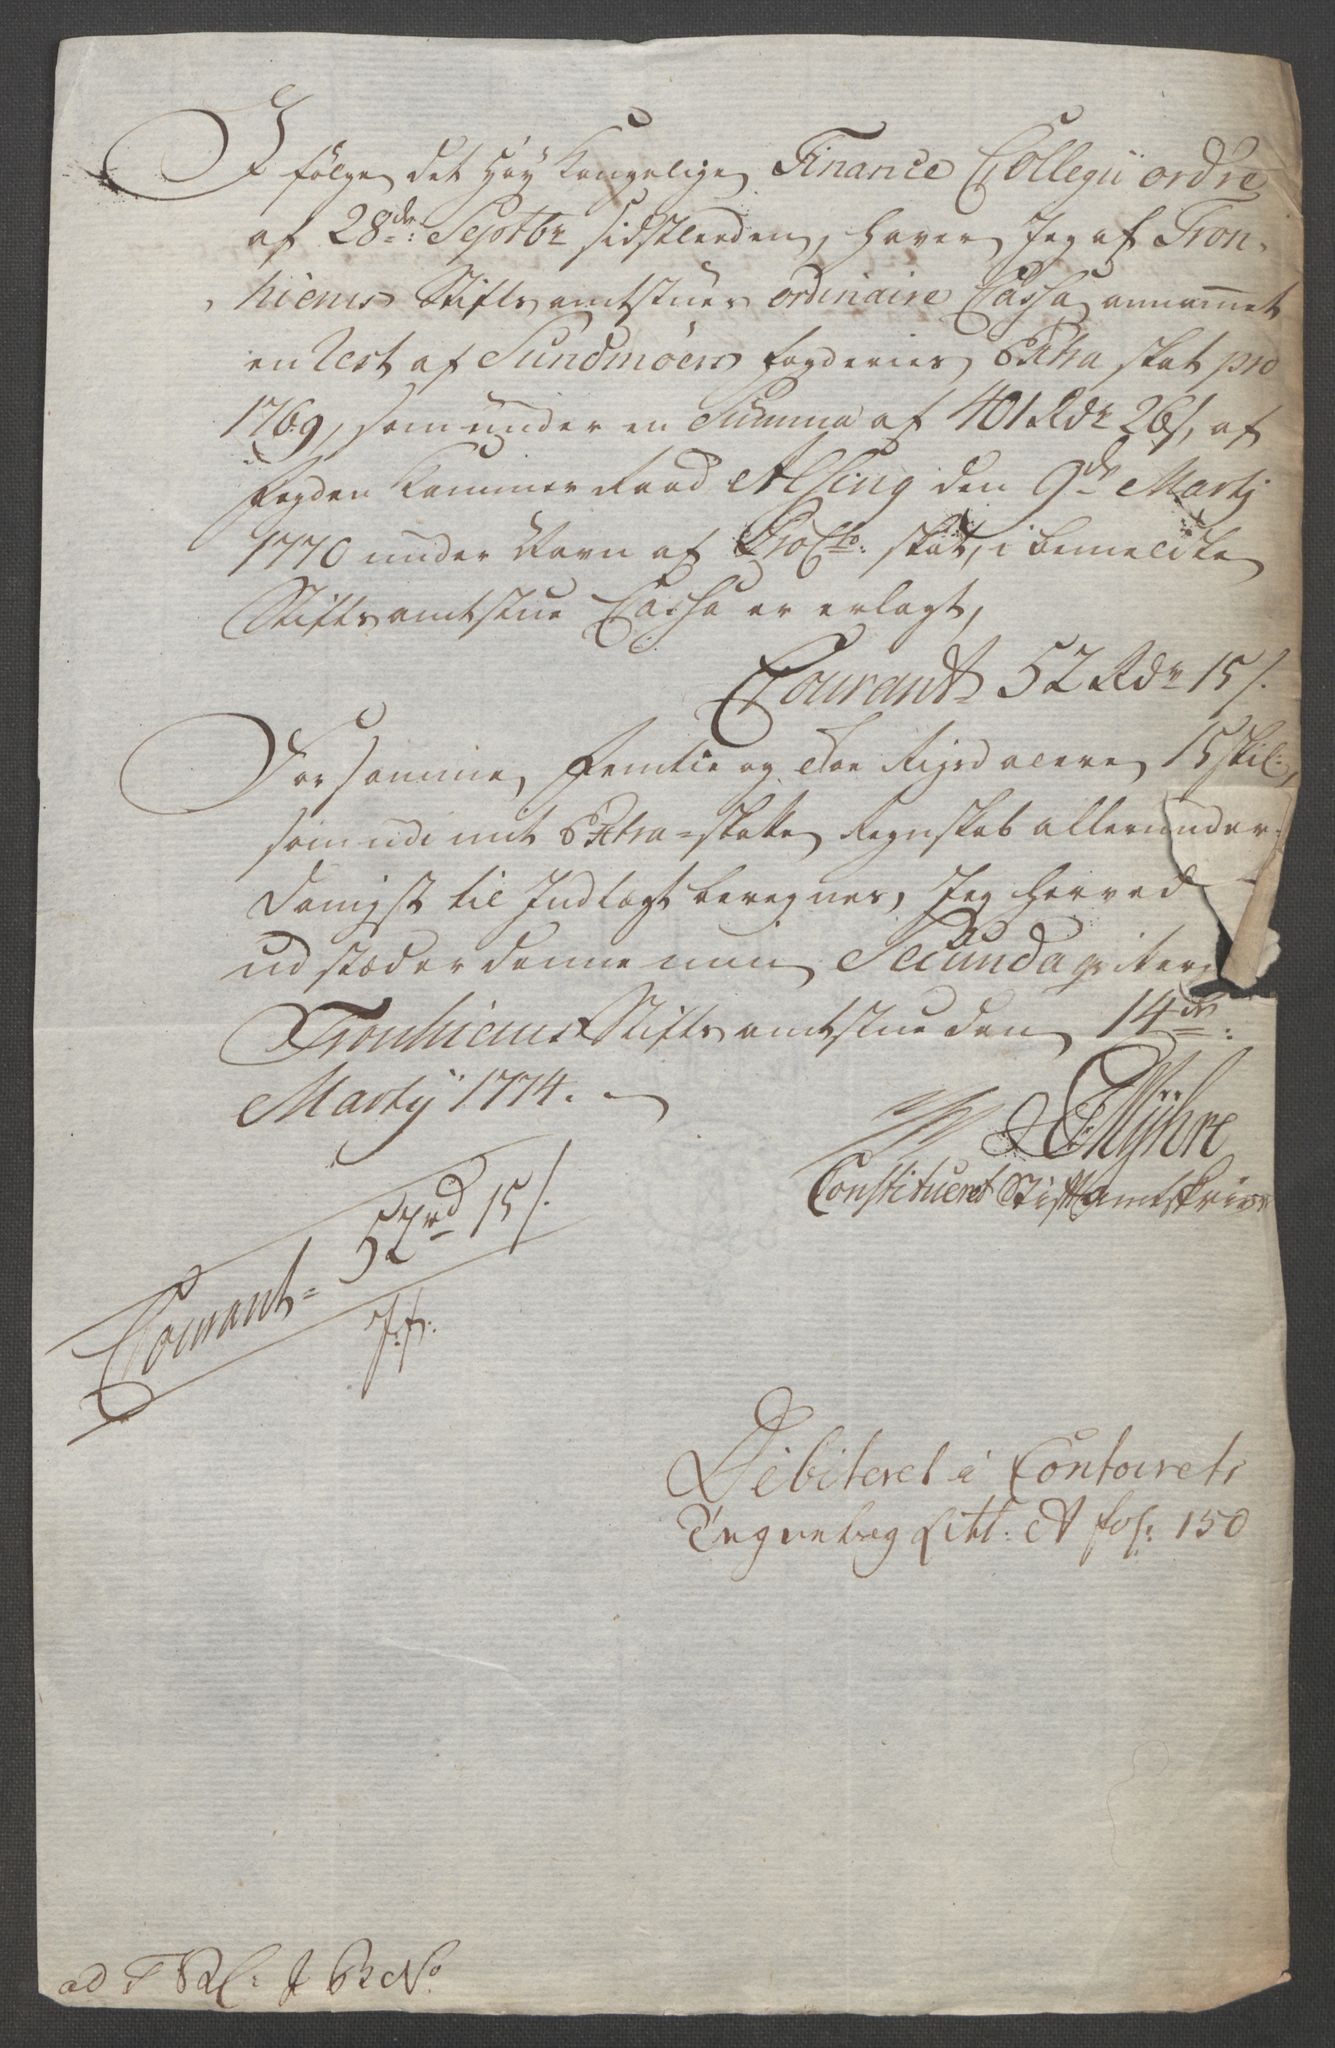 I følge det Høy Kongelige Finance Collegii ordre
af 28de: Septbr sidstleeden, haver Jeg af Tron-
hiems Stiftsamtstues ordinaire Cassa annammet
en Rest af Sundmøers fogderies Extra skat pro
1769, som under en Summa af 401 Rdr 26 s, af
fogden Kammer Raad Alsing den 9de Martij
1770 under Navn af ProCto: skat, i bemeldte
Stiftsamtstue Cassa er erlagt,
Courant 52 Rdr 15 s.
For samme, femtie og Toe Rigsdalere 15 skil:,
som udi mit Extra-skatte Regnskab allerunder-
danigst til Indtægt beregnes, Jeg herved
udstæder denne min Secunda qvitering
Tronhiems Stiftsamtstue den 14de:
Martij 1774.
Myhre
Constitueret Stiftamtskriver
Courant = 52rd 15 s.
Debiteret i Contoirets
Tegnebog Litt: A fol: 150
ad No